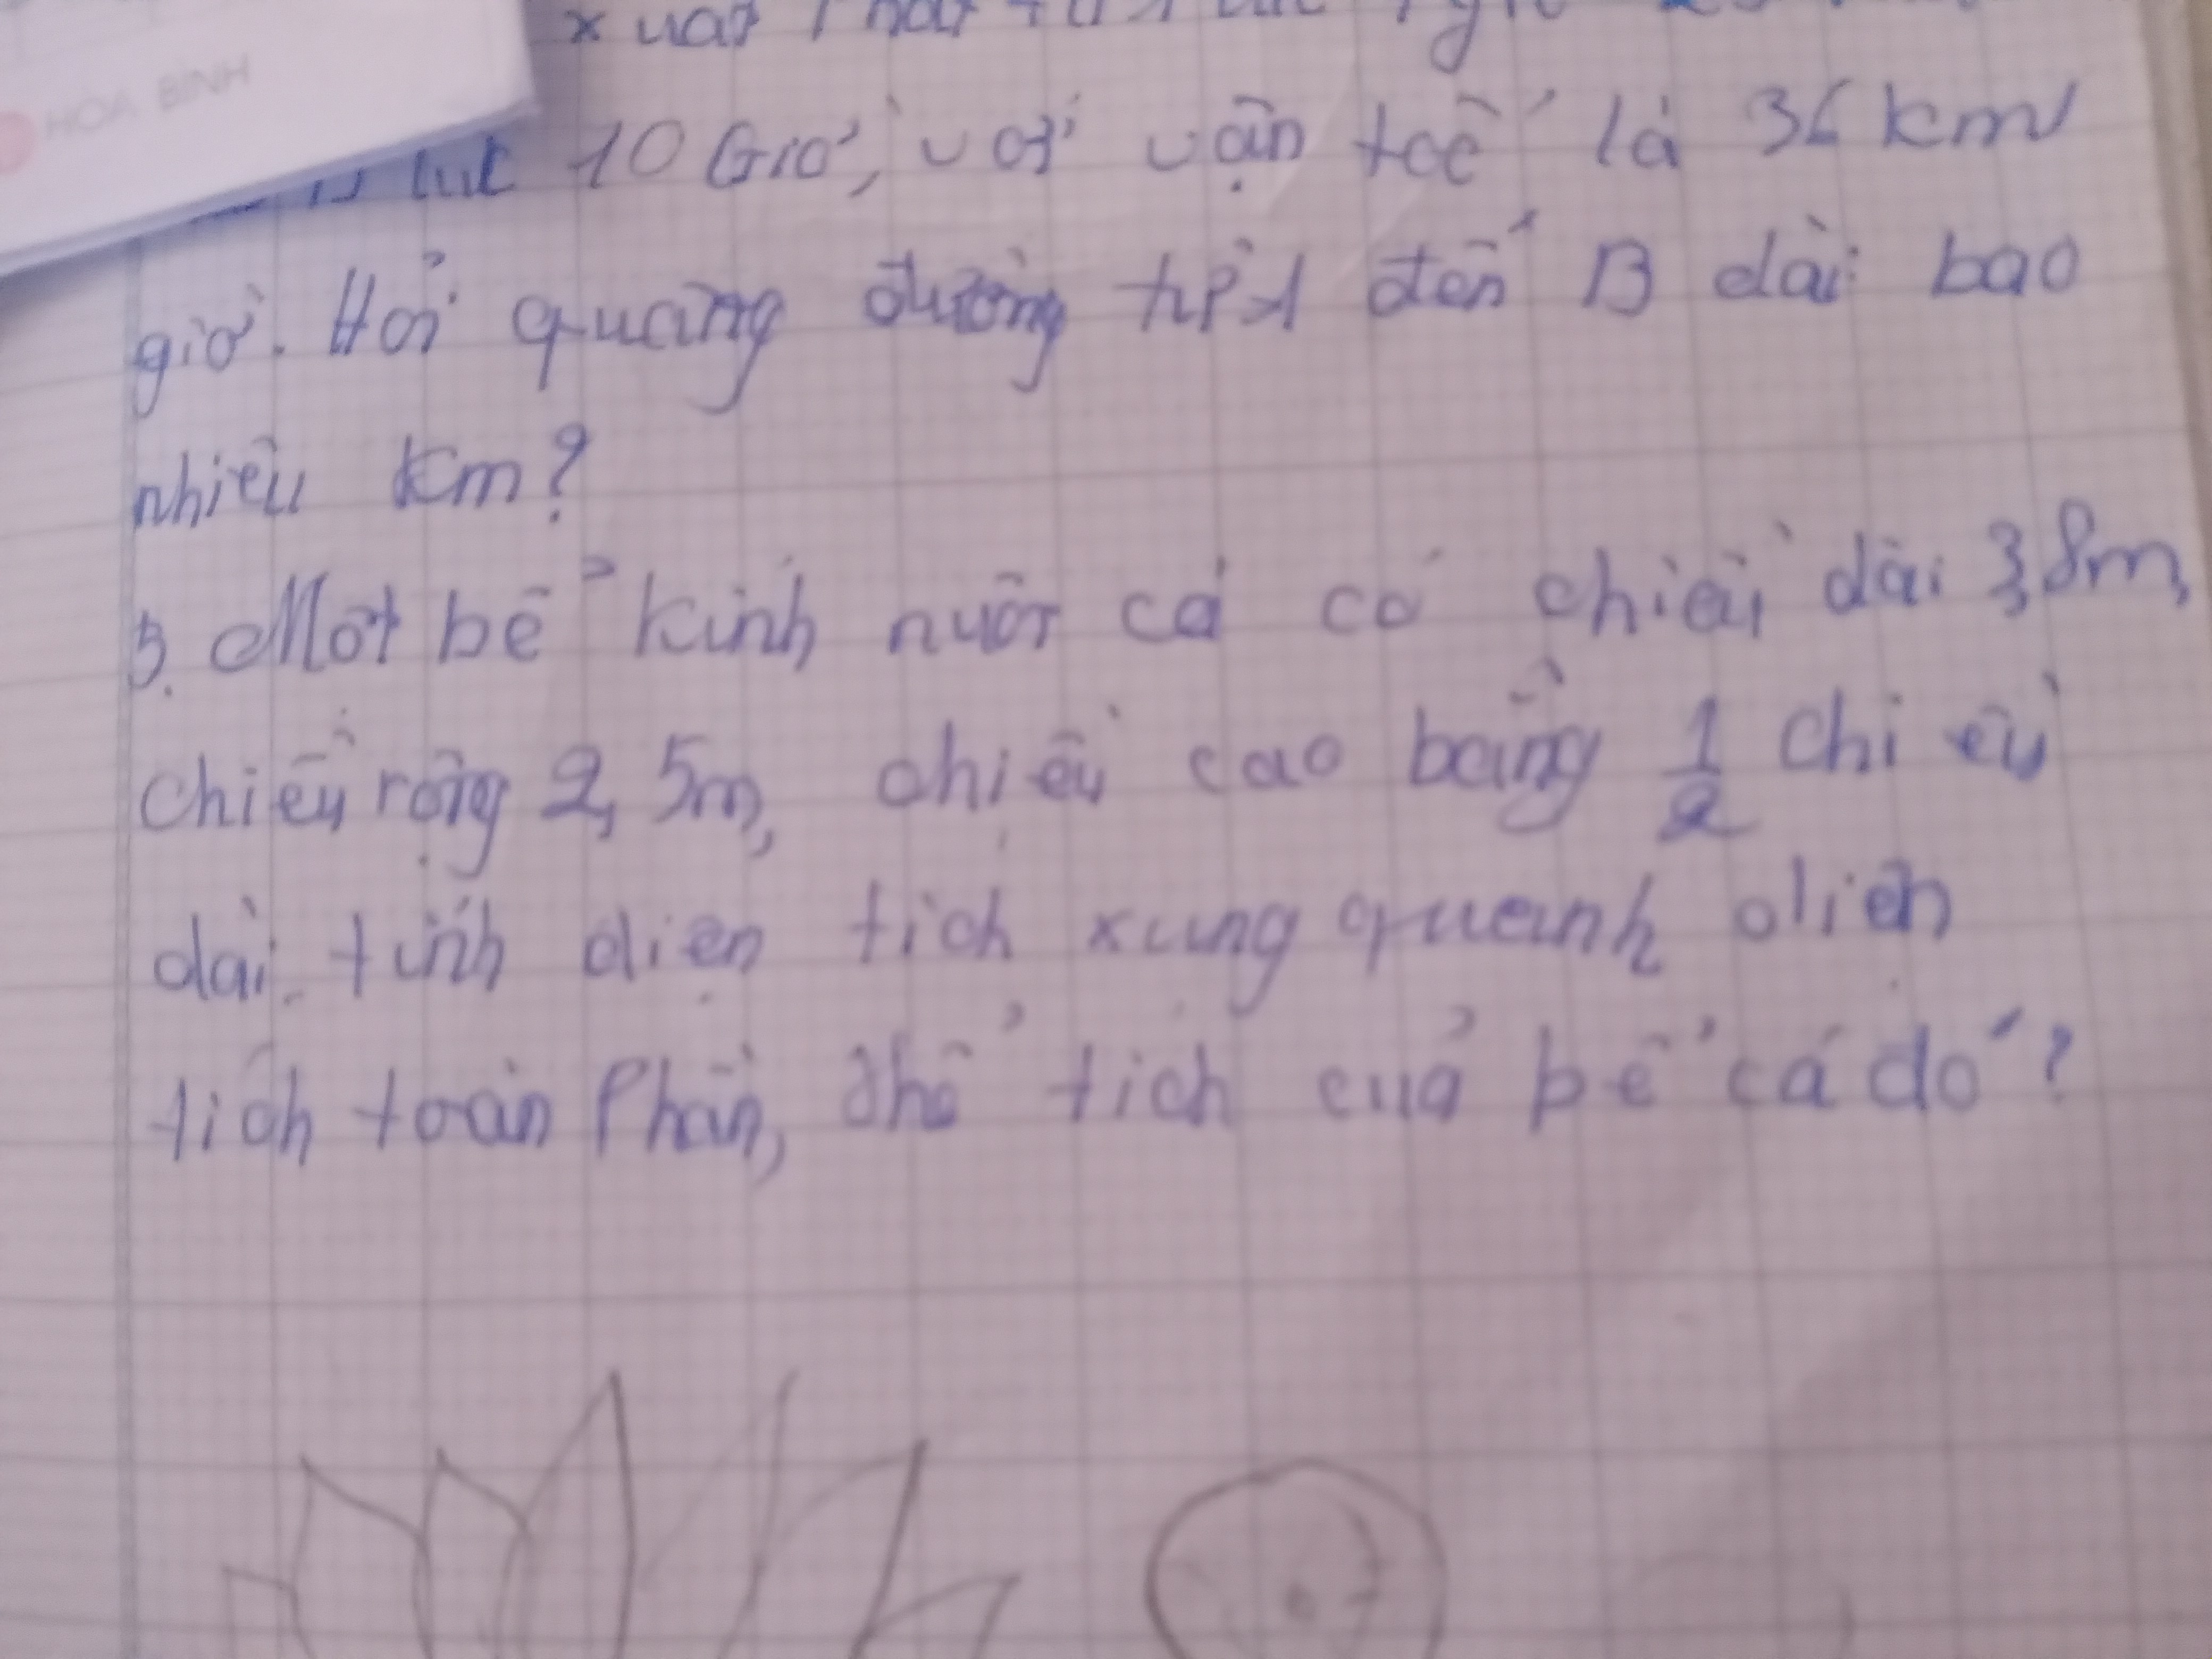 HÒA BÌNH
xuất phát từ A lúc
lúc 10 Giờ, với vận tốc là 36 km
giờ. Hỏi quãng đường từ A đến B dài bao
nhiêu km?
5. Một bể kính nuôi cá có chiều dài 3,8m,
chiều rộng 2,5m, chiều cao bằng 1/2 chiều
dài. tính diện tích xung quanh diện
tích toàn phần, thể tích của bể cá đó?